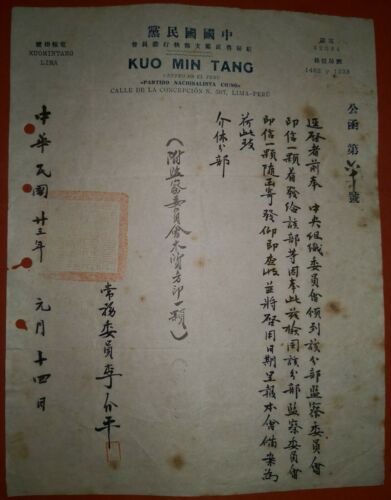 中國國民黨
駐秘魯直屬支部執行委員會
電報掛號
KUOMINTANG
LIMA
電話
KUO MIN TANG
CENTRO EN EL PERÚ
«PARTIDO NACIONALISTA CHINO»
CALLE DE LA CONCEPCIÓN N. 507, LIMA-PERÚ
公函 第 號
逕啟者前奉 中央組織委員會頒到該分部監察委員會
印信一顆着發給該部等因奉此茲檢同該分部監察委員會
印信一顆隨函寄發仰即查收並將啓用日期呈報本會備案為
荷此致
分部
(附監察委員會木質方印一顆)
常務委員李介平
中華民國廿三年 元月十四日